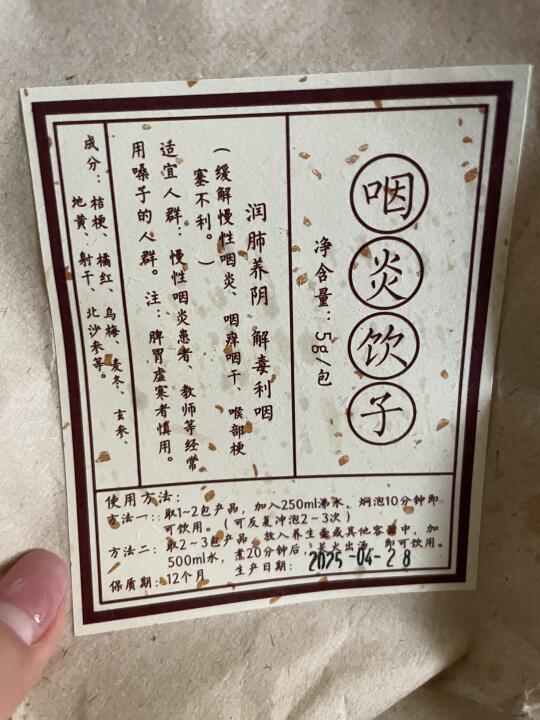 咽炎饮子
净含量：5g/包
润肺养阴 解毒利咽
（缓解慢性咽炎、咽痒咽干、喉部梗
塞不利。）
适宜人群：慢性咽炎患者、教师等经常
用嗓子的人群。注：脾胃虚寒者慎用。
成分：桔梗、橘红、乌梅、麦冬、玄参、
地黄、射干、北沙参等。
使用方法：
方法一：取1~2包产品，加入250ml沸水，焖泡10分钟即
可饮用。（可反复冲泡2~3次）
方法二：取2~3包产品，放入养生壶或其他容器中，加
500ml水，煮20分钟后，关火出汤，即可饮用。
保质期：12个月 生产日期：2025-04-28